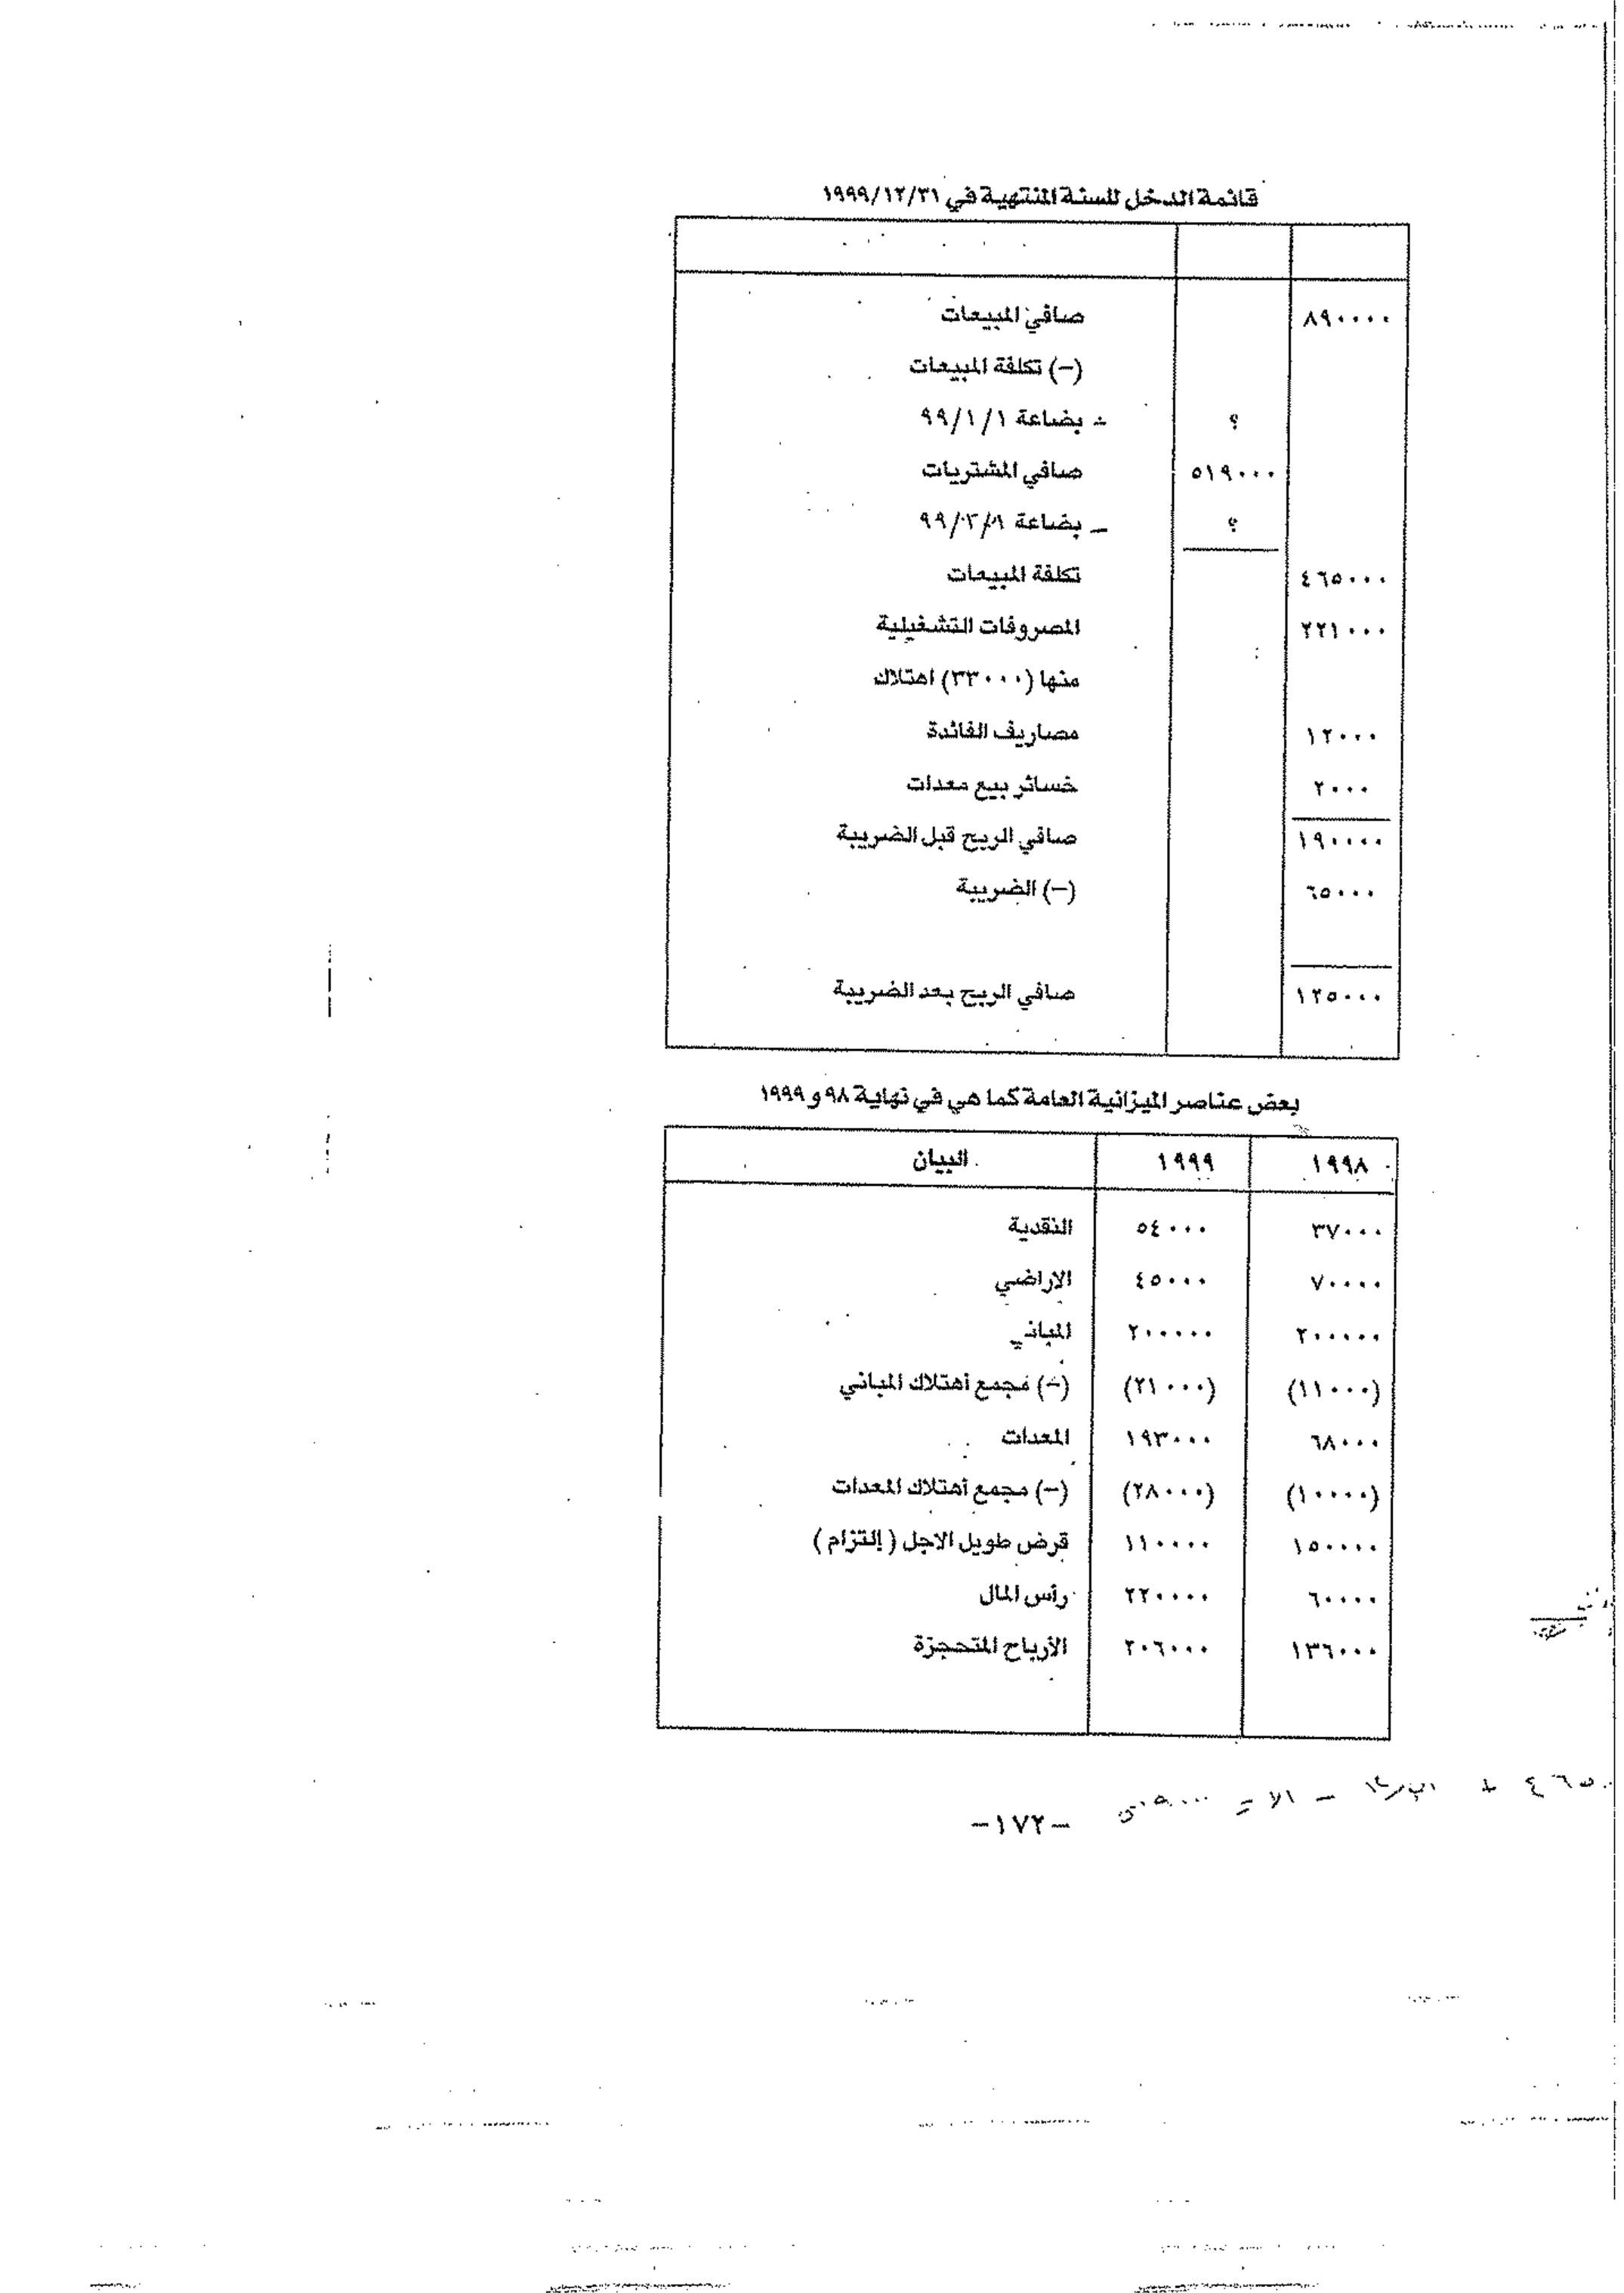 قائمة الدخل للسنة المنتهية في ١٩٩٩/١٢/٣١
صافي المبيعات ٨٩٠٠٠٠
(–) تكلفة المبيعات
- بضاعة ٩٩/١/١ ؟
صافي المشتريات ٥١٩٠٠٠
– بضاعة ؟
تكلفة المبيعات ٤٦٥٠٠٠
المصروفات التشغيلية ٢٢١٠٠٠
منها (٣٣٠٠٠) اهتلاك
مصاريف الفائدة ١٢٠٠٠
خسائر بيع معدات ٢٠٠٠
صافي الربح قبل الضريبة ١٩٠٠٠٠
(–) الضريبة ٦٥٠٠٠
صافي الربح بعد الضريبة ١٢٥٠٠٠
بعض عناصر الميزانية العامة كما هي في نهاية ٩٨ و ١٩٩٩
البيان ١٩٩٩ ١٩٩٨
النقدية ٥٤٠٠٠ ٣٧٠٠٠
الاراضي ٤٥٠٠٠ ٧٠٠٠٠
المباني ٢٠٠٠٠٠ ٢٠٠٠٠٠
(–) مجمع أهتلاك المباني (٢١٠٠٠) (١١٠٠٠)
المعدات ١٩٣٠٠٠ ٦٨٠٠٠
(–) مجمع أهتلاك المعدات (٢٨٠٠٠) (١٠٠٠٠)
قرض طويل الاجل (إلتزام) ١١٠٠٠٠ ١٥٠٠٠٠
رأس المال ٢٢٠٠٠٠ ٦٠٠٠٠
الأرباح المتحجزة ٢٠٦٠٠٠ ١٣٦٠٠٠
–١٧٢–